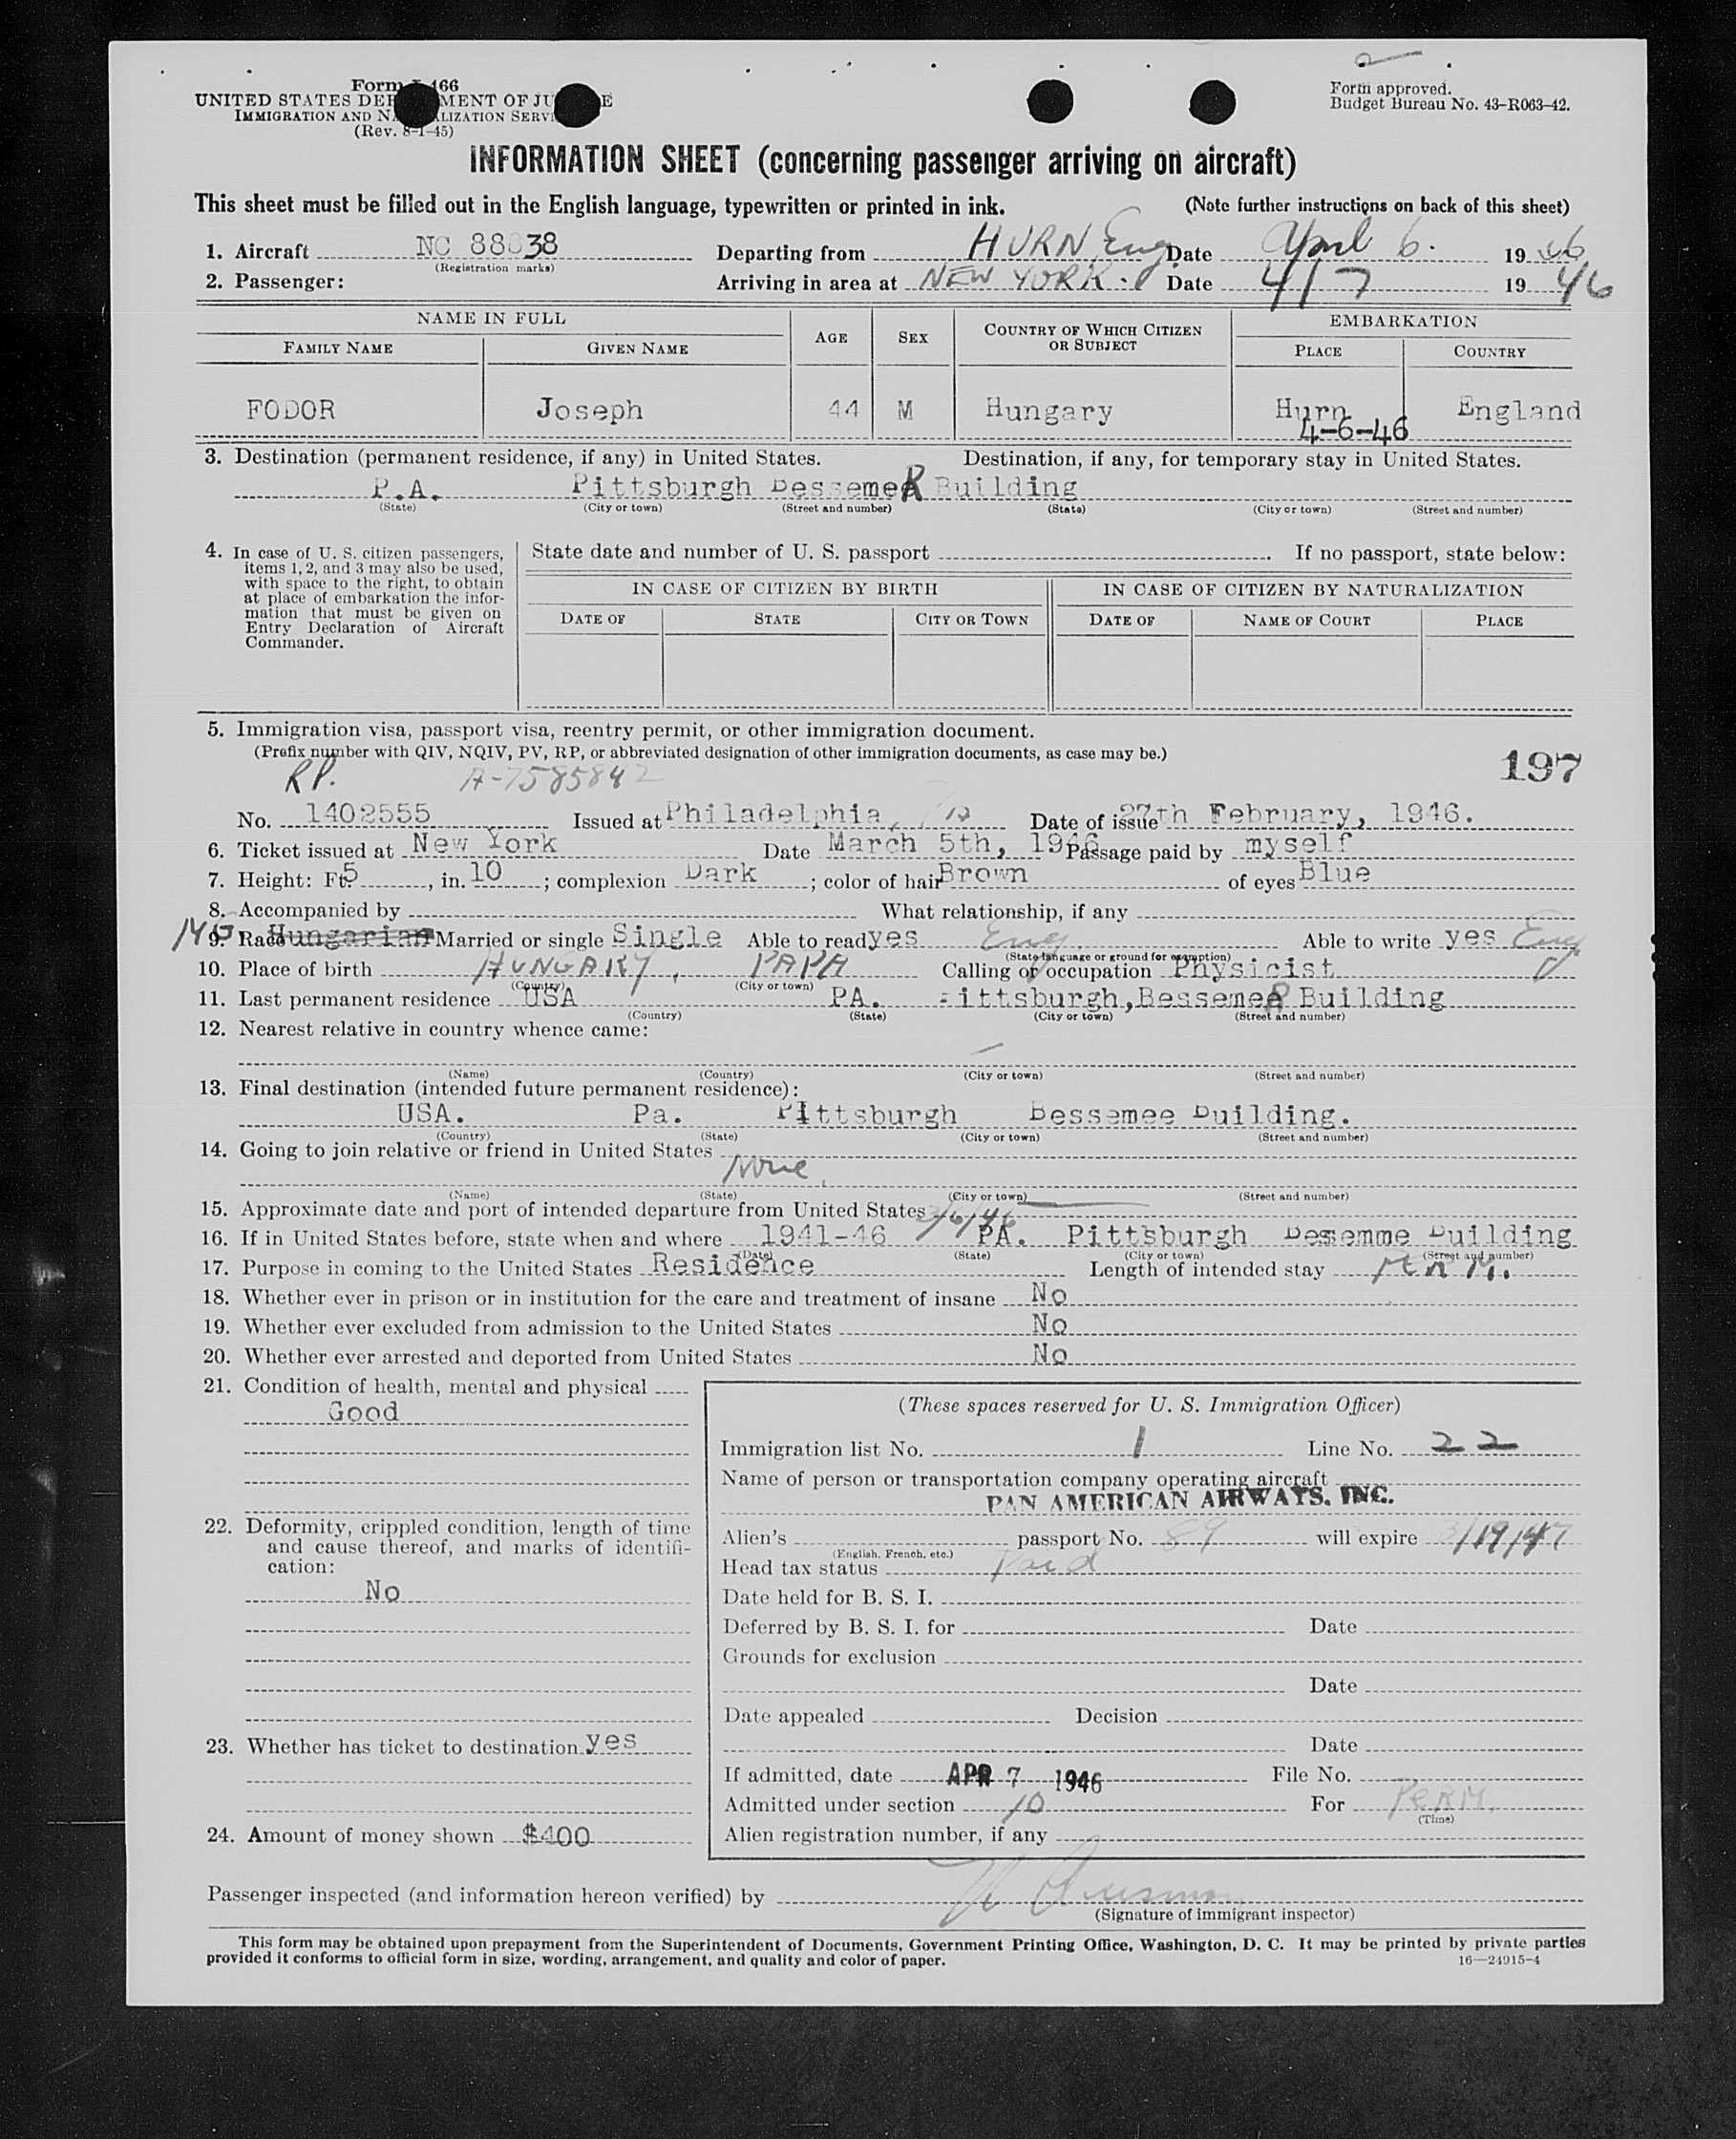 2
Form I-466
UNITED STATES DEPARTMENT OF JUSTICE
IMMIGRATION AND NATURALIZATION SERVICE
(Rev. 8-1-45)
Form approved.
Budget Bureau No. 43-R063-42.
INFORMATION SHEET (concerning passenger arriving on aircraft)
This sheet must be filled out in the English language, typewritten or printed in ink. (Note further instructions on back of this sheet)
1. Aircraft NC 88838 Departing from HURN, Eng. Date April 6. 1946
(Registration marks)
2. Passenger: Arriving in area at NEW YORK. Date 4/7 1946
NAME IN FULL AGE SEX COUNTRY OF WHICH CITIZEN OR SUBJECT EMBARKATION
FAMILY NAME GIVEN NAME PLACE COUNTRY
FODOR Joseph 44 M Hungary Hurn England
4-6-46
3. Destination (permanent residence, if any) in United States. Destination, if any, for temporary stay in United States.
P.A. Pittsburgh BessemeR Building
(State) (City or town) (Street and number) (State) (City or town) (Street and number)
4. In case of U. S. citizen passengers, items 1, 2, and 3 may also be used, with space to the right, to obtain at place of embarkation the information that must be given on Entry Declaration of Aircraft Commander.
State date and number of U. S. passport . If no passport, state below:
IN CASE OF CITIZEN BY BIRTH IN CASE OF CITIZEN BY NATURALIZATION
DATE OF STATE CITY OR TOWN DATE OF NAME OF COURT PLACE
5. Immigration visa, passport visa, reentry permit, or other immigration document.
(Prefix number with QIV, NQIV, PV, RP, or abbreviated designation of other immigration documents, as case may be.)
197
RP. A-7585842
No. 1402555 Issued at Philadelphia, Pa Date of issue 27th February, 1946.
6. Ticket issued at New York Date March 5th, 1946 Passage paid by myself
7. Height: Ft. 5, in. 10; complexion Dark; color of hair Brown of eyes Blue
8. Accompanied by What relationship, if any
9. Race Hungarian Married or single Single Able to read yes Eng. Able to write yes Eng
(State language or ground for exemption)
10. Place of birth HUNGARY, PAPA Calling or occupation Physicist
(Country) (City or town)
11. Last permanent residence USA PA. Pittsburgh, BessemeR Building
(Country) (State) (City or town) (Street and number)
12. Nearest relative in country whence came:
(Name) (Country) (City or town) (Street and number)
13. Final destination (intended future permanent residence):
USA. Pa. Pittsburgh Bessemee Building.
(Country) (State) (City or town) (Street and number)
14. Going to join relative or friend in United States
None
(Name) (State) (City or town) (Street and number)
15. Approximate date and port of intended departure from United States 3/6/46
16. If in United States before, state when and where 1941-46 PA. Pittsburgh Besemme Building
(Date) (State) (City or town) (Street and number)
17. Purpose in coming to the United States Residence Length of intended stay
18. Whether ever in prison or in institution for the care and treatment of insane No
19. Whether ever excluded from admission to the United States No
20. Whether ever arrested and deported from United States No
21. Condition of health, mental and physical
Good
22. Deformity, crippled condition, length of time and cause thereof, and marks of identification:
No
23. Whether has ticket to destination yes
24. Amount of money shown $400
(These spaces reserved for U. S. Immigration Officer)
Immigration list No. 1 Line No. 22
Name of person or transportation company operating aircraft
PAN AMERICAN AIRWAYS, INC.
Alien's passport No. 89 will expire 3/19/47
(English, French, etc.)
Head tax status Paid
Date held for B. S. I.
Deferred by B. S. I. for Date
Grounds for exclusion
Date
Date appealed Decision
Date
If admitted, date APR 7 1946 File No.
Admitted under section 10 For PERM.
(Time)
Alien registration number, if any
Passenger inspected (and information hereon verified) by
(Signature of immigrant inspector)
This form may be obtained upon prepayment from the Superintendent of Documents, Government Printing Office, Washington, D. C. It may be printed by private parties
provided it conforms to official form in size, wording, arrangement, and quality and color of paper.
16—24915-4